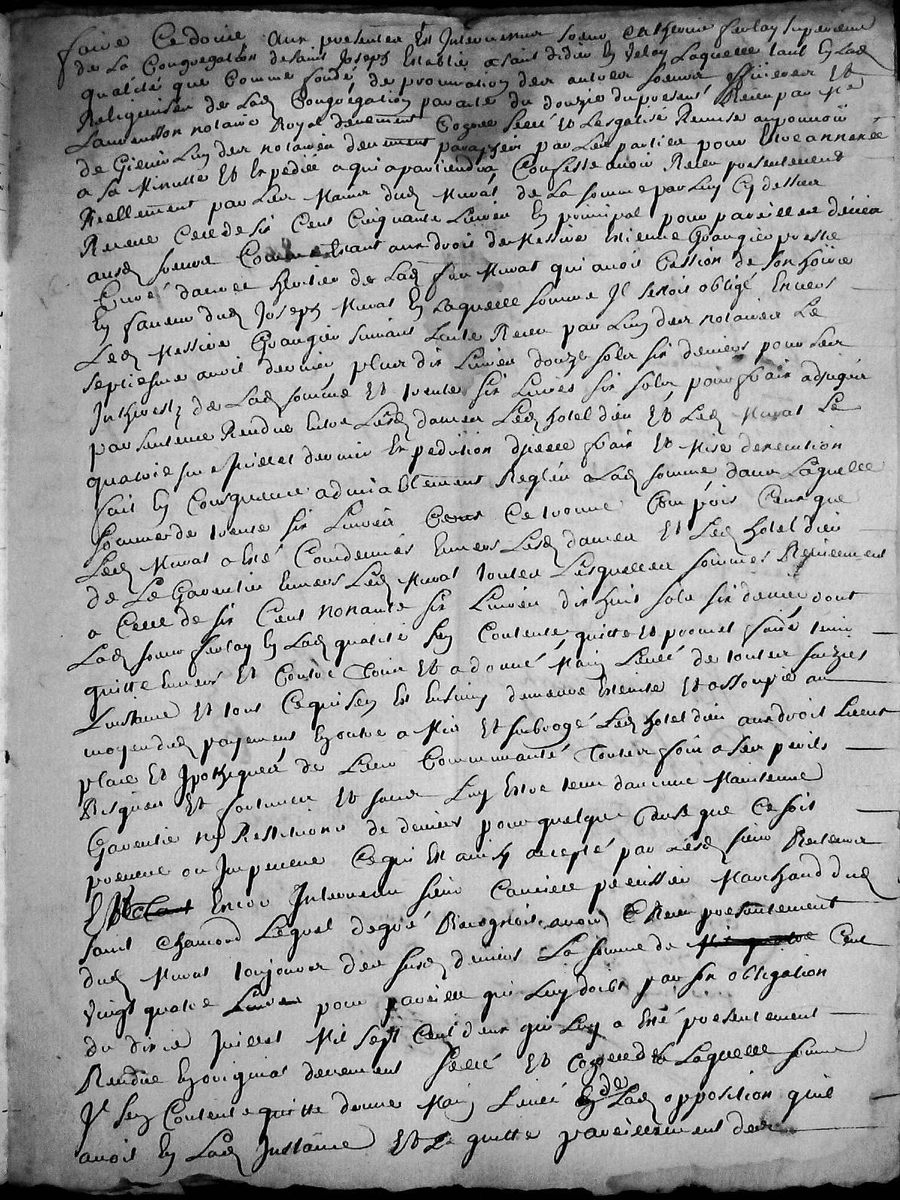 faire Ce donné aux presenter Est Intervenue soeur Catherine ferlay superieure
de La Congregation de saint Joseph Establie a saint didier En Velay Laquelle tant En Lad
qualité que Comme fondé de procuration des autres soeurs et
Religieuses de Lad Congregation par acte du douzie du present Receu par Me
Laurenson notaire Royal deuement Scelé Et Lesgalisé Remise au pouvoir
de Gienin Luy des notaires deuement paraphée par Les parties pour Estre annexée
a La Minutte Et Expediée a qui apartiendra Confesse avoir Receu presentement
Reellement par Les Mains dud Murat de La somme par Luy Cy dessus
Receue Celle de six Cent Cinquante Livres En principal pour pareille deüe
auxd soeurs Comme Estant aux droits de Messire Estienne Grangier prestre
Curé heritier de Lad Murat qui avoit Cession de son hoirie
En faveur dud Joseph Murat En Laquelle somme Il sestoit obligé Envers
Led Messire Grangier suivant Lacte Receu par Luy des notaires Le
septiesme avril dernier plus dix Livres douze sols six deniers pour Les
Inthérestz de Lad somme Et trente six Livres six sols pour frais adjugés
par sentence Rendue Entre Lesd dames Led hotel dieu Et Led Murat Le
quatorsie Juillet dernier Expedition dicelle frais Et Mise dexecution
fait En Consequence admiablement Reglés a Lad somme dans Laquelle
somme de trente six Livres Ce trouve Compris Ceux que
Led Murat a Esté Condemné Envers Lesd dames Et Led hotel dieu
de Le Garentir Envers Led Murat toutes Lesquelles sommes Reviennent
a Celle de six Cent nonante six Livres dix huit sols six denier dont
Lad soeur ferlay En Lad qualité Sen Contente quitte Et promet faire tenir
quitte Envers Et Contre Tous Et a donné Main Levée de toutes saizies
Linstance Et tout Ce qui sen Est Ensuivy demeure Esteinte Et assoupie au
moyen dud payement En outre a Mis Et subrogé Led hotel dieu aux droit Lieux
place Et Ipothéques de Leur Communauté Toutes fois a ses perils
Risques Et fortunes Et sans Luy Estre tenue daucune Maintenue
Garentie ny Restitution de deniers pour quelque Cause que Ce soit
preveue ou Impreveue Ce qui Est ainsy accepté par Lesd sieurs Recteurs
Encor Intervenu sieur Marchand dud
saint Chamond Lequel degré avoir Receu presentement
dud Murat toujours des susd deniers La somme de Cent
vingt quatre Livres pour pareille qui Luy doibt par son obligation
du dixie Juillet Mil sept Cent deux qui Luy a Esté presentement
Rendue En original deuement Scelé Et Laquelle somme
Il sen Contente quitte donne Main Levée de Lad opposition quil
avoit En Lad Instance Et Le quitte pareillement des